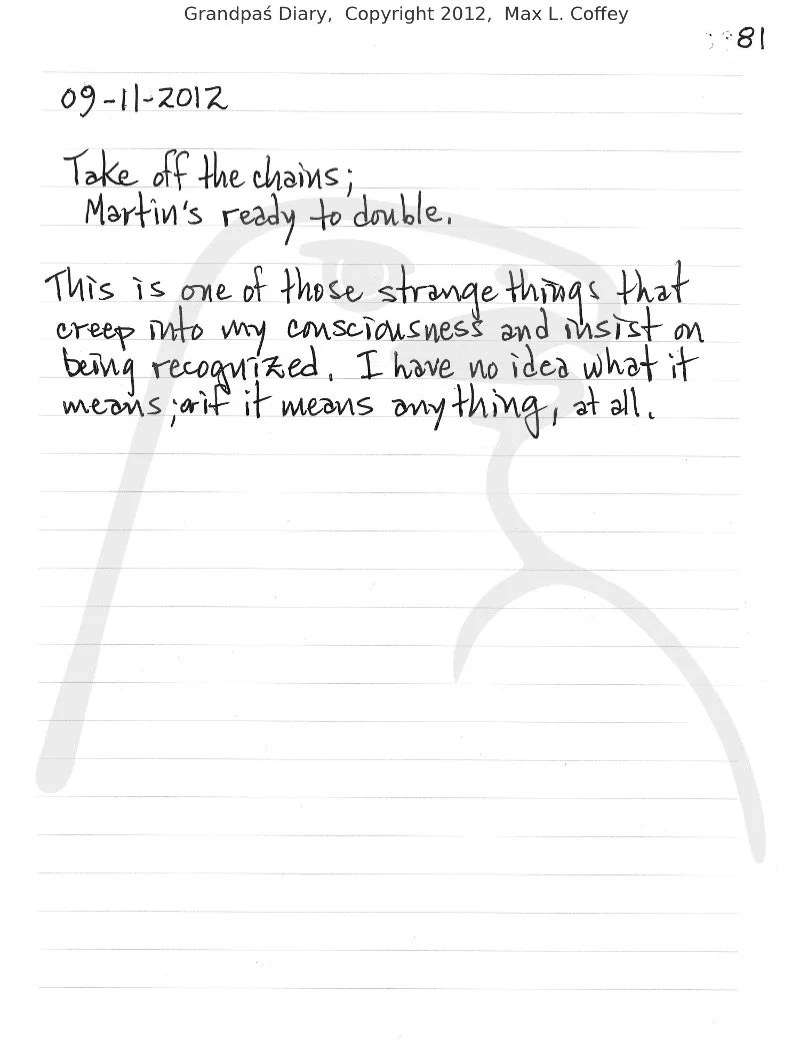 Grandpaś Diary, Copyright 2012, Max L. Coffey
81
09-11-2012
Take off the chains;
Martin's ready to double.
This is one of those strange things that
creep into my consciousness and insist on
being recognized. I have no idea what it
means; or if it means anything, at all.